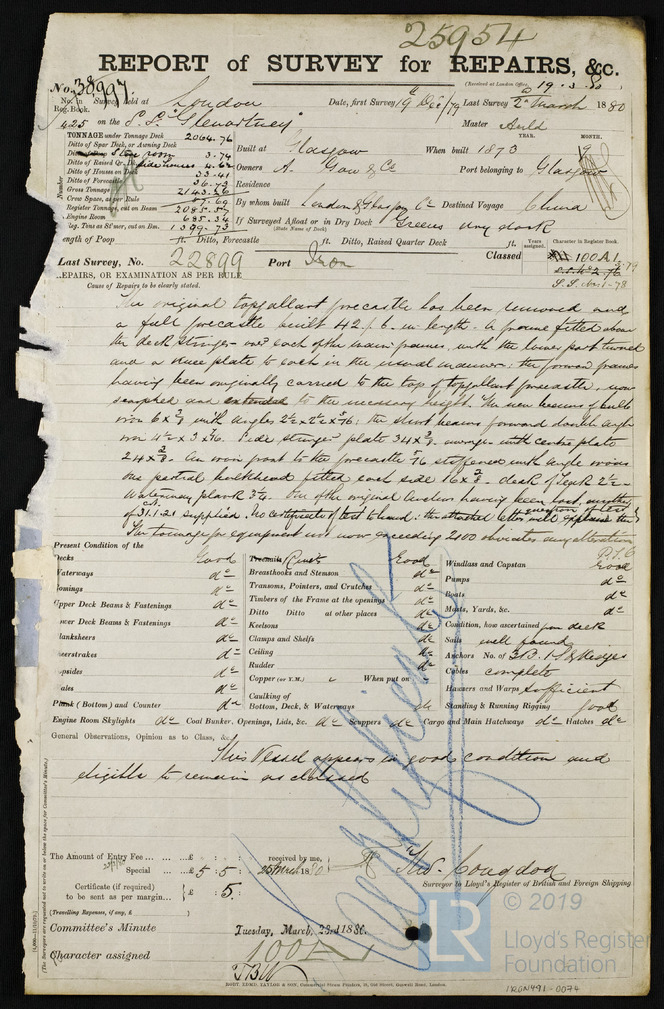 25954
REPORT of SURVEY for REPAIRS, &c.
(Received at London Office, 19.3.80
No. 38997.
No. in Reg. Book. Survey held at London Date, first Survey 19th Dec/79 Last Survey 2d March 1880
425 on the S.S. "Glenartney" Master Auld
TONNAGE under Tonnage Deck 2064.76
Ditto of Spar Deck, or Awning Deck
Store room 3.74
Ditto of Raised Qr. Dk. side houses 4.62
Ditto of Houses on Deck 33.41
Ditto of Forecastle 36.73
Gross Tonnage 2143.26
Crew Space, as per Rule 57.69
Register Tonnage, cut on Beam 2085.57
Engine Room 685.84
Reg. Tons as St'mer, cut on Bm. 1399.73
Built at Glasgow When built YEAR. 1873 MONTH. 9
Owners A. Gow & Co Port belonging to Glasgow
Residence
By whom built London & Glasgow Co Destined Voyage China
If Surveyed Afloat or in Dry Dock Greens dry dock
(State Name of Dock)
Length of Poop ft. Ditto, Forecastle ft. Ditto, Raised Quarter Deck ft.
Years assigned. Character in Register Book.
Last Survey, No. 22899 Port Iron Classed 100A1.
S.S. No. 1-78
REPAIRS, OR EXAMINATION AS PER RULE
Cause of Repairs to be clearly stated.
The original topgallant forecastle has been removed and
a full forecastle built 42 ft. 6 in. length. A frame fitted above
the deck stringer over each of the main frames, with the lower part turned
and a knee plate to each in the usual manner: the former frames
having been originally carried to the top of topgallant forecastle, now
scarphed and extended to the necessary height. The new beams of bulb
iron 6 x 3/8 with angles 2½ x 2½ x 5/16: the short beams forward double angle
iron 4½ x 3 x 7/16. Side stringer plate 34 x 3/8 with centre plate
24 x 3/8. An iron front to the forecastle 5/16 stiffened with angle irons
one partial bulkhead fitted each side 16 x 8 - deck of teak 2½ -
Waterway plank 3½. One of the original anchors having been lost, another
of 31.1.21 supplied. No certificate of test to hand: the attached letter will explain the question of test.
The tonnage for equipment is now exceeding 2100 alteration
P.T.O
Present Condition of the
Decks Good
Waterways do
Comings do
Upper Deck Beams & Fastenings do
Lower Deck Beams & Fastenings do
Planksheers do
Sheerstrakes do
Topsides do
Wales do
Plank (Bottom) and Counter do
Engine Room Skylights do Coal Bunker, Openings, Lids, &c. do Scuppers do Cargo and Main Hatchways do Hatches do
Treenails / Rivets Good
Breasthooks and Stemson do
Transoms, Pointers, and Crutches do
Timbers of the Frame at the openings do
Ditto Ditto at other places do
Keelsons do
Clamps and Shelfs do
Ceiling do
Rudder do
Copper (or Y.M.) When put on
Caulking of
Bottom, Deck, & Waterways do
Windlass and Capstan Good
Pumps do
Boats do
Masts, Yards, &c. do
Condition, how ascertained from deck
Sails well found
Anchors No. of 3B. 1S. & Kedges
Cables complete
Hawsers and Warps sufficient
Standing & Running Rigging good
General Observations, Opinion as to Class, &c.
This Vessel appears in good condition and
eligible to remain as classed
Certificate
The Amount of Entry Fee ... ... £ : : received by me,
Special ... £ 5 : 5 : 25 March 1880
Certificate (if required) to be sent as per margin... £ : 5.
(Travelling Expenses, if any, £ )
Thos. Congdon
Surveyor to Lloyd's Register of British and Foreign Shipping.
Committee's Minute Tuesday, March, 23d 1880.
Character assigned 100A1
(The Surveyors are requested not to write on or below the space for Committee's Minute.)
© 2019
LR
Lloyd's Register
Foundation
IRON491-0074